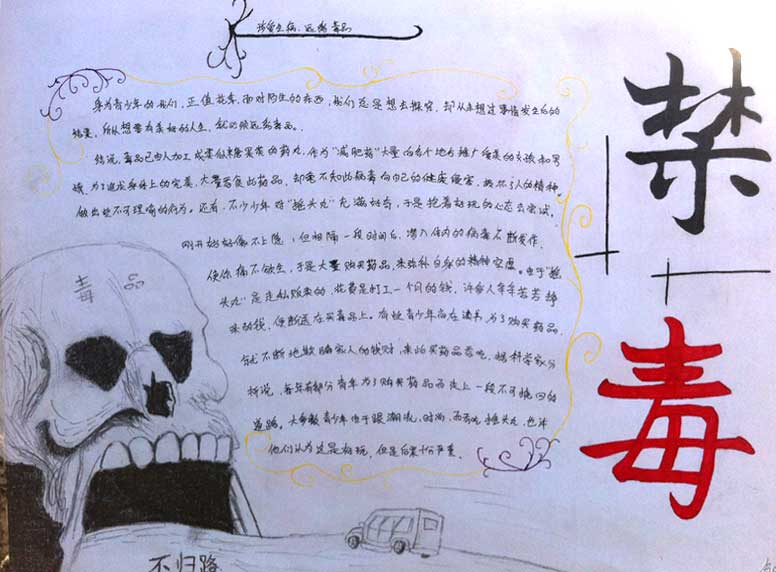 珍爱生命、远离毒品
身为青少年的我们，正值花季，面对陌生的东西，我们总是想去探究，却从未想过事情发生后的
结果，所以想要有美好的人生，就必须远离毒品。
毒品已由人加工成类似糖果类的药丸，作为"减肥药"大量向各个地方推广爱美的女孩和男
孩，为了追求身体上的完美，大量吞食此药品，却毫不知此病毒向自己的健康侵害，损坏了人的精神。
做出些不可理喻的行为。还有，不少少年对"摇头丸"充满好奇，于是抱着好玩的心态去尝试，
刚开始好像不上瘾，但相隔一段时间后，潜入体内的病毒不断发作，
使你痛不欲生，于是大量购买药品，来弥补自身的精神空虚。由于"摇
头丸"是走私贩来的，花费是打工一个月的钱，许多人辛辛苦苦挣
来的钱，便断送在买毒品上。有些青少年尚在读书，为了购买药品，
就不断地欺骗家人的钱财，来此买药品吞吃，据科学家分
析说，每年有部分青年为了购买药品而走上一段不可挽回的
道路，大多数青少年由于跟潮流，时尚，而吞吃摇头丸，也许
他们认为这是好玩，但是后果十分严重。
禁
毒
毒 品
不归路